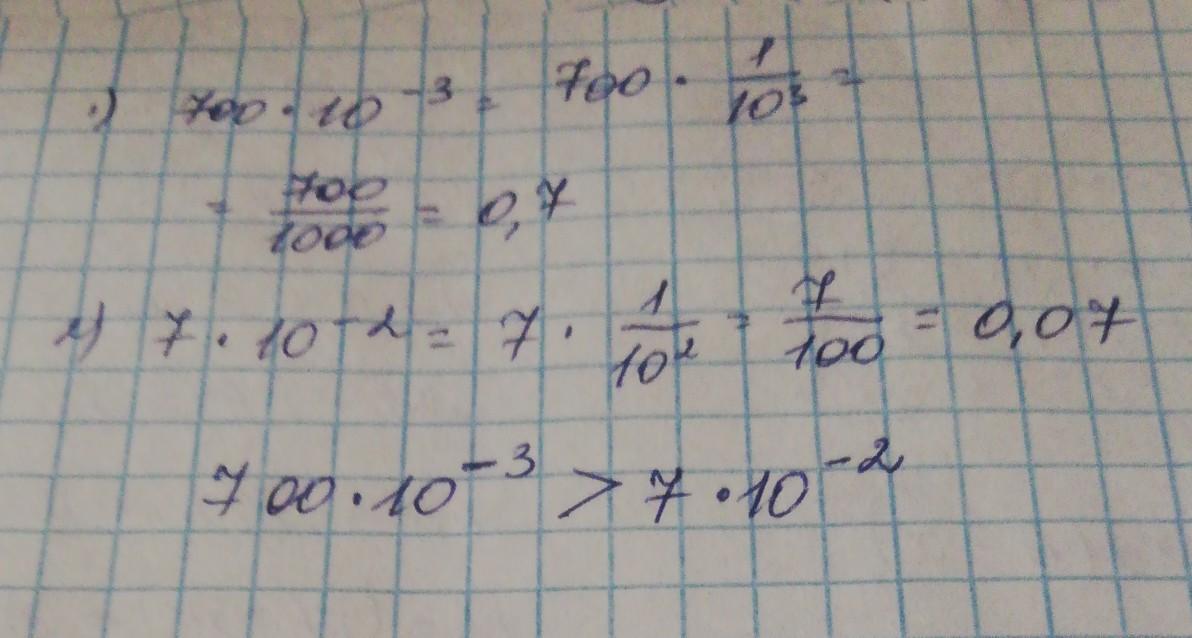 1) 700 · 10⁻³ = 700 · 1/10³ =
= 700/1000 = 0,7
2) 7 · 10⁻² = 7 · 1/10² = 7/100 = 0,07
700 · 10⁻³ > 7 · 10⁻²